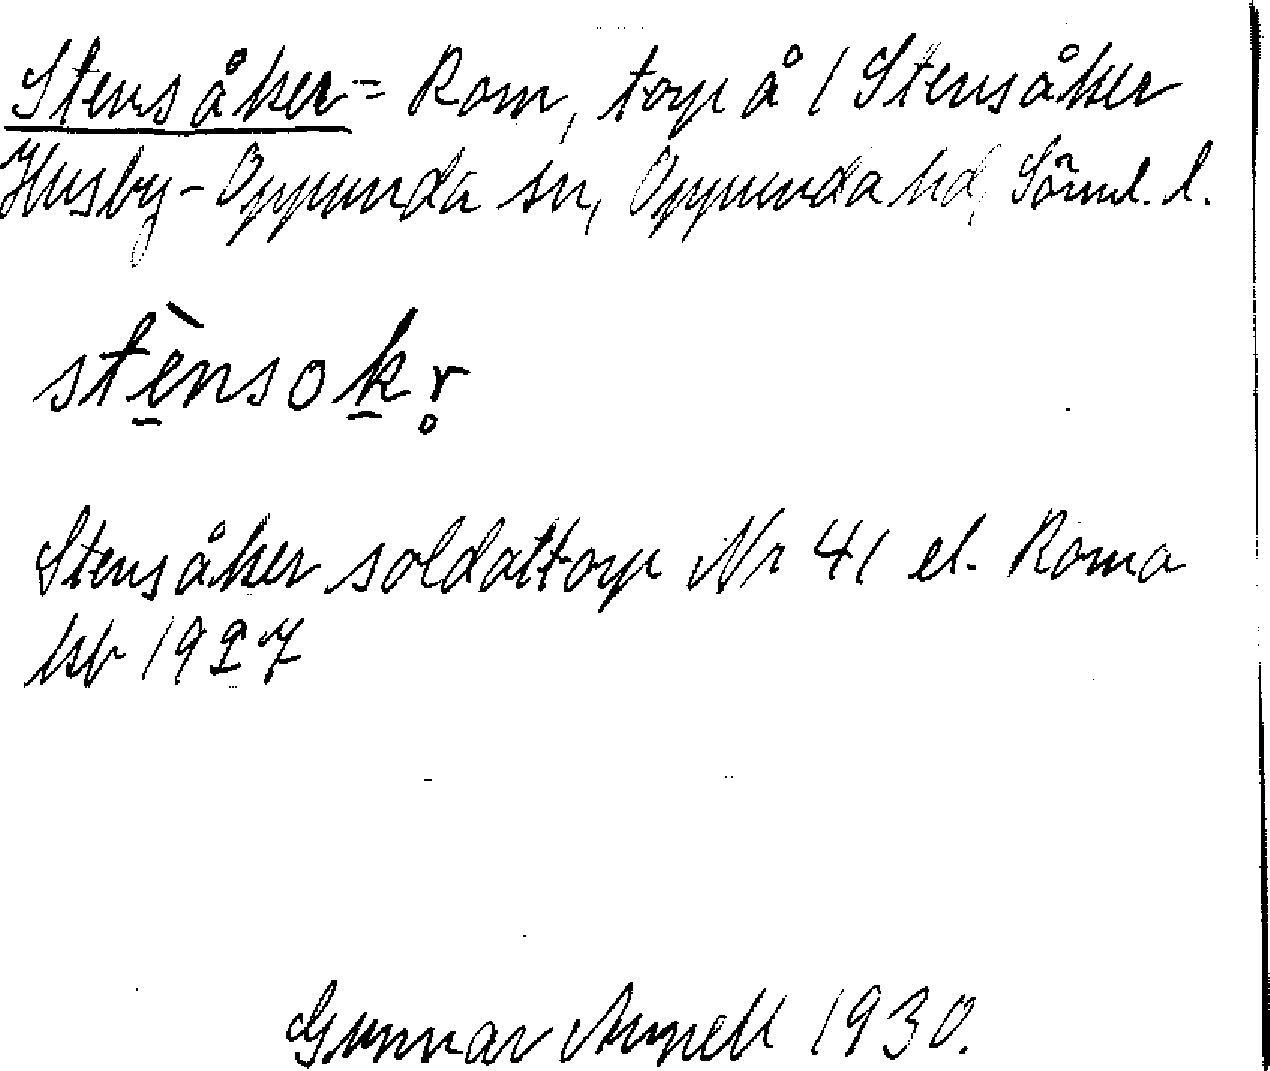 Stensåker = Rom, torp å 1 Stensåker
Husby-Oppunda sn, Oppunda hd, Söml. l.
stènsokr̥
Stensåker soldattorp Nr 41 el. Roma
kb 1927
Gunnar 1930.